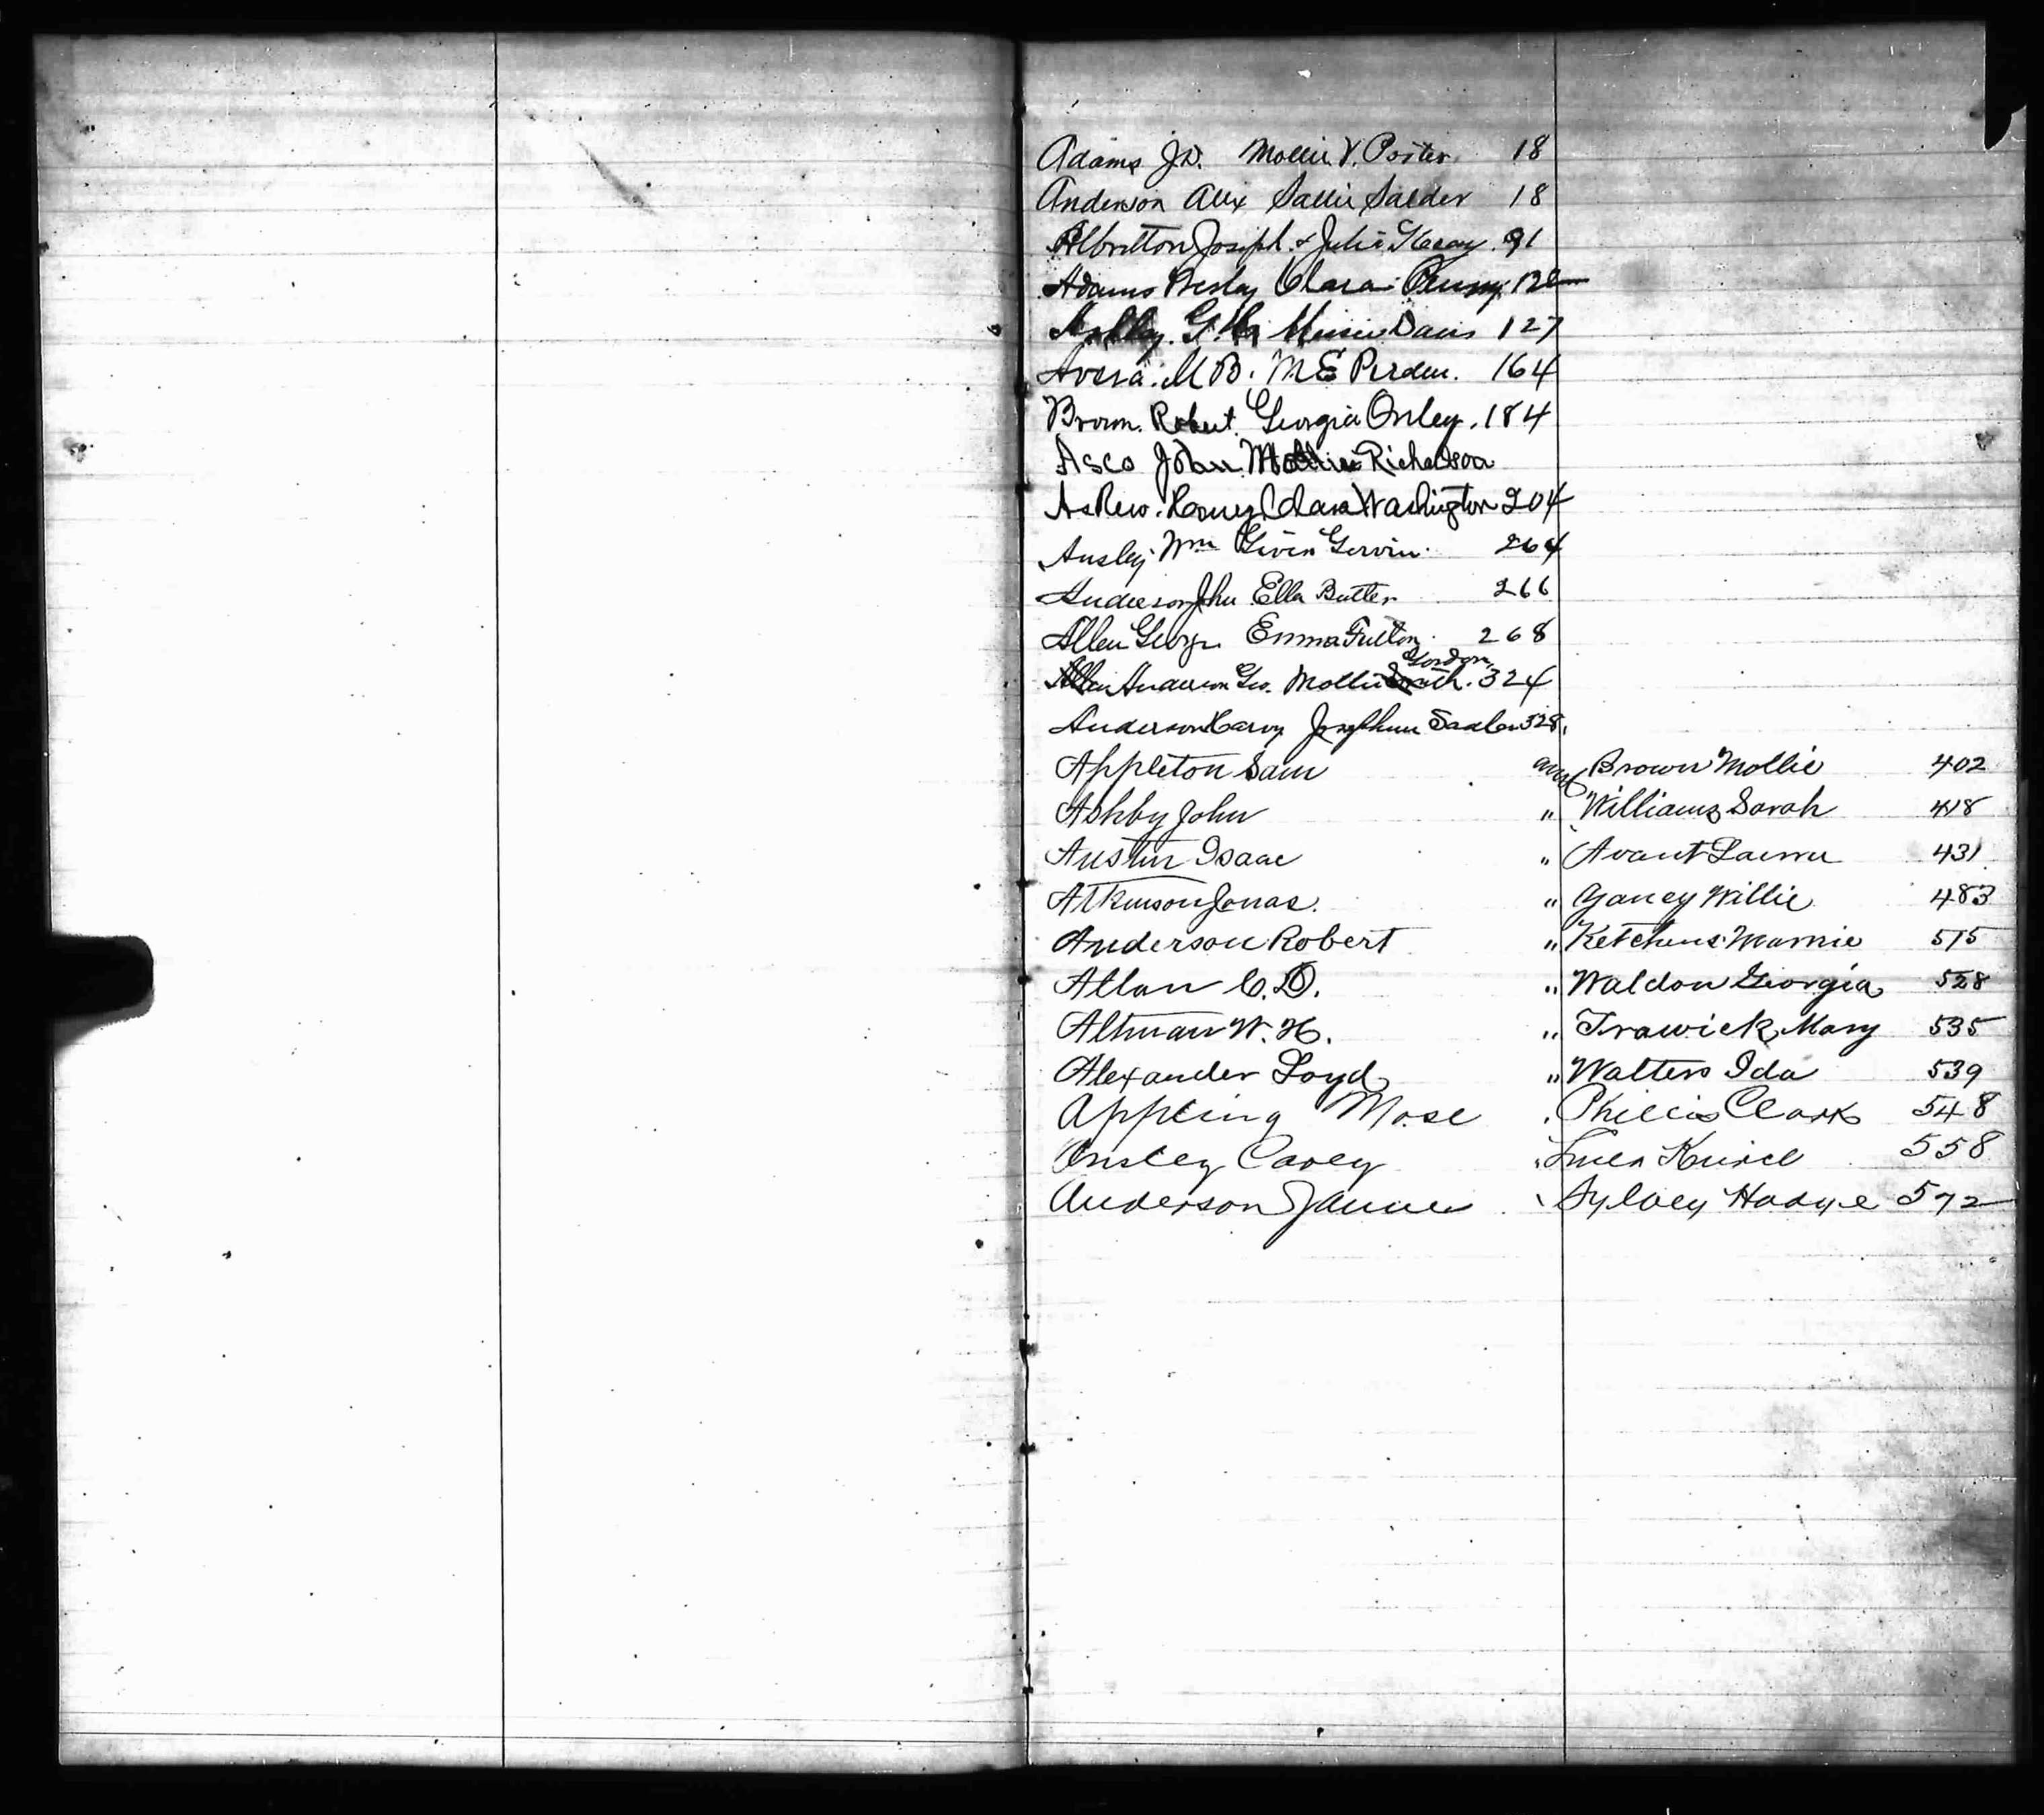 Adams J.D. Mollie V. Porter 18
Anderson Alex Sallie Salder 18
Albritton Joseph & Julia 91
Adams Presley Clara 
Ashley. G. Minnie Davis 127
Avera. M B. M E Purdeu. 164
Brown. Robert. Georgia Onley. 184
Asco John Mollie Richadson
Askew. Henry Clara Washington 204
Ansley Wm Given Gervin. 264
Anderson Jhn Ella Butler 266
Allen George Emma Fulton. 268
Gordon
Anderson Geo. Mollie 324
Anderson Harvy Josephine Sadler 328.
Appleton Sam and Brown Mollie 402
Ashby John " Williams Sarah 418
Austin Isaac " Avant Laura 431
Atkinson Jonas. " Yancy Willie 483
Anderson Robert " Ketchens Mamie 515
Allan C.D. " Waldon Georgia 528
Altman W. H. " Trawick Mary 535
Alexander Loyd " Walters Ida 539
Appling Mose " Phillis Clark 548
Ansley Carey " 558
Anderson " Sylvey Hodge 572